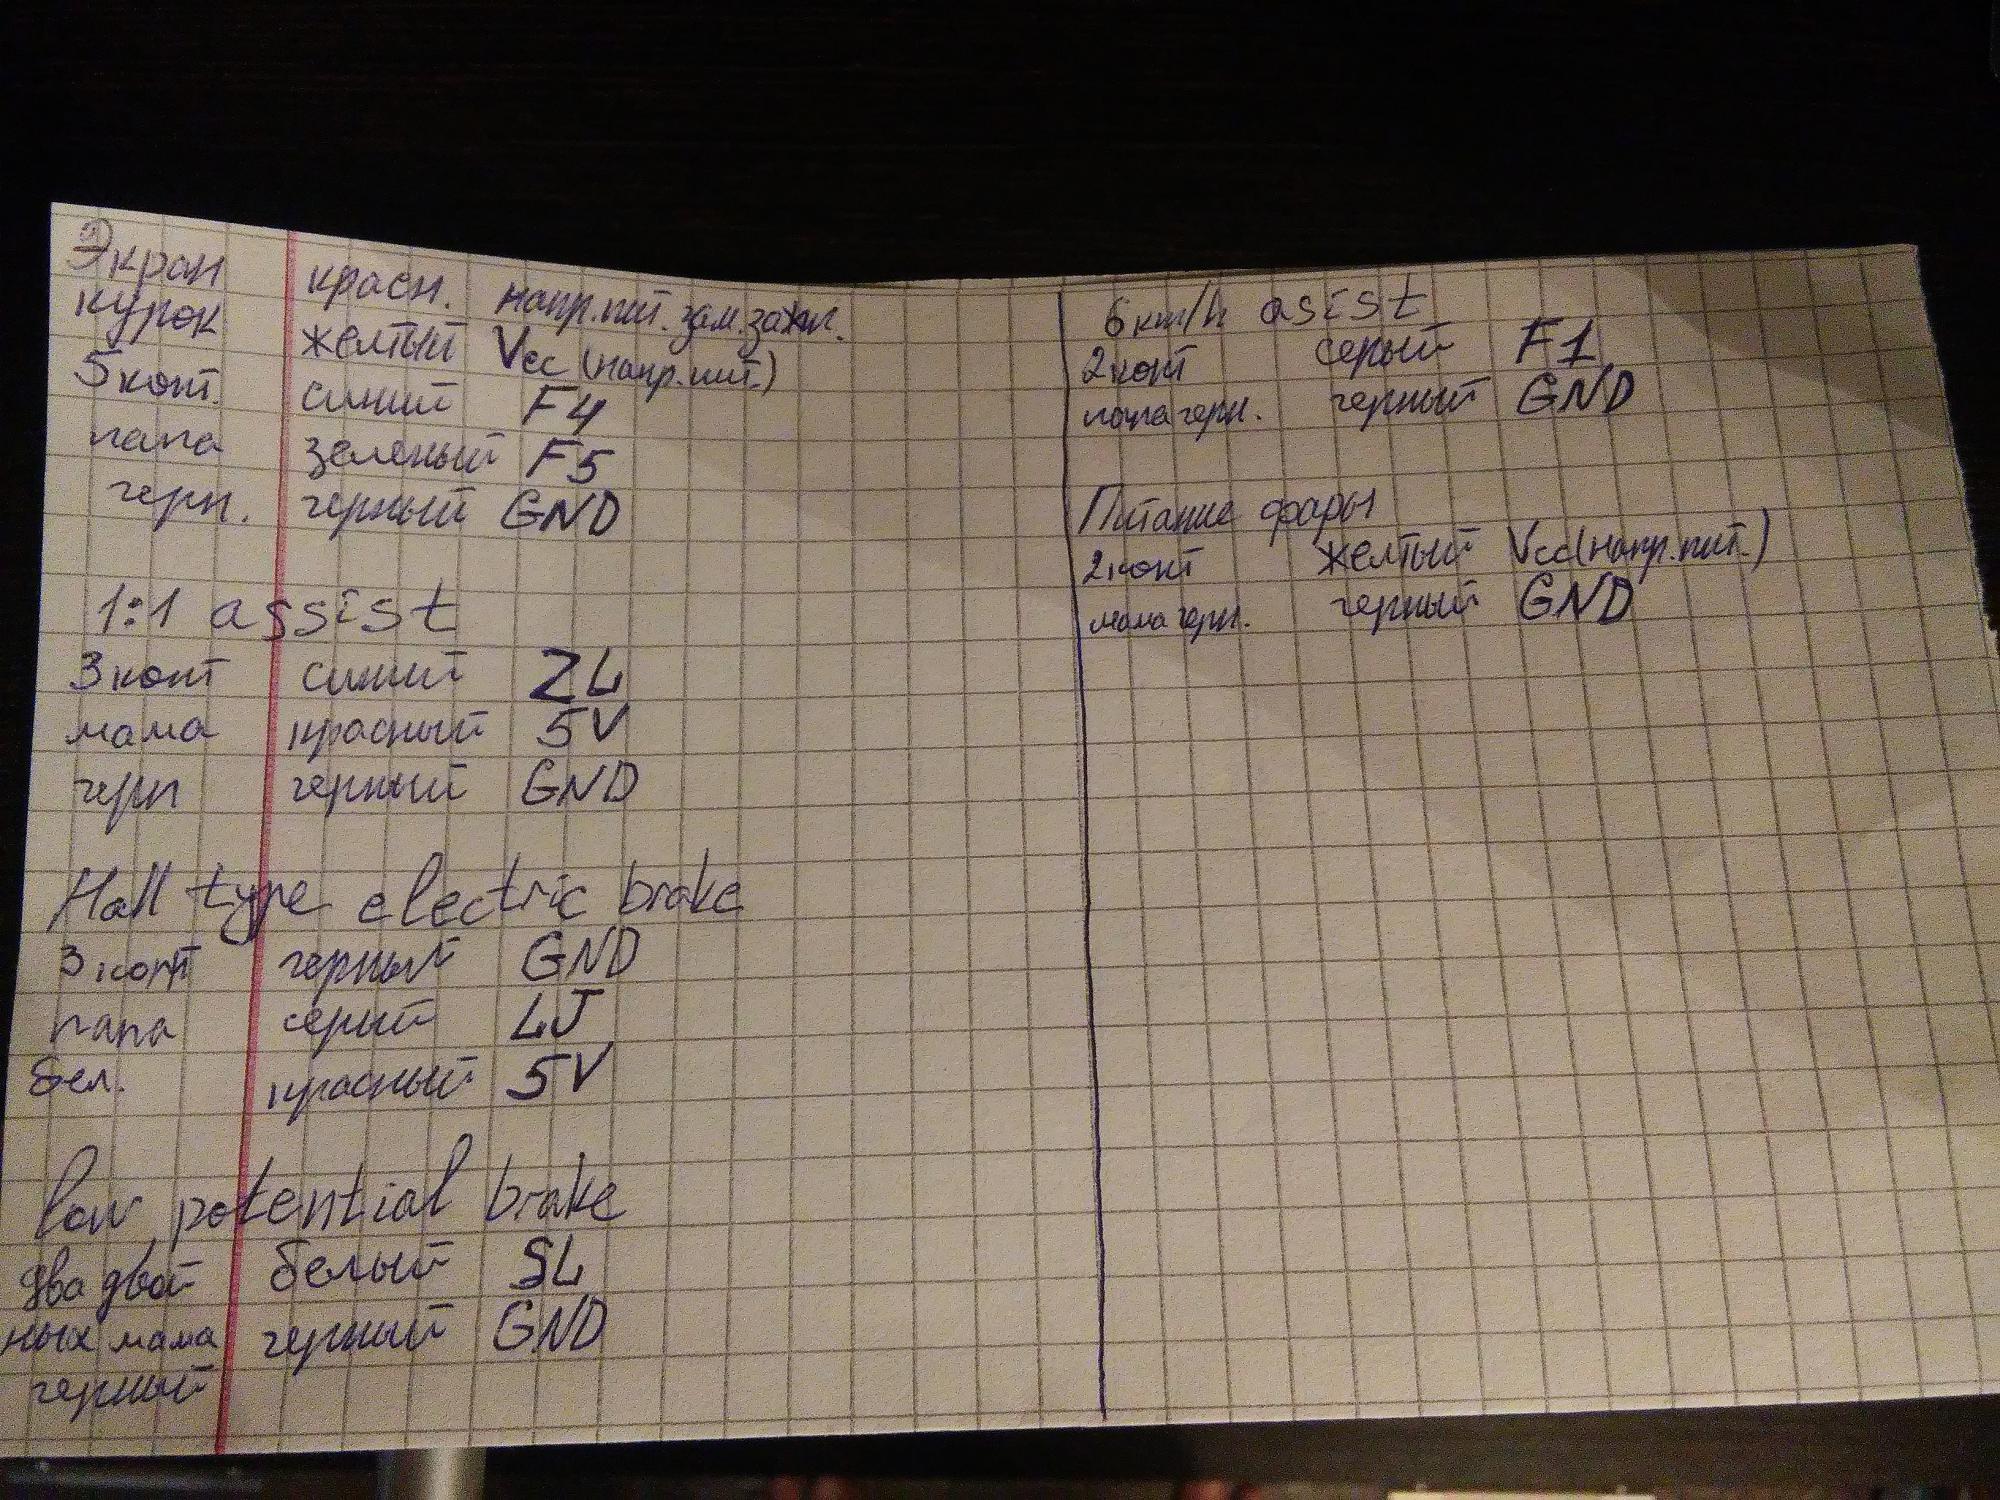 Экран красн. напр.пит. зам.зажиг.
курок желтый Vcc (напр.пит.)
5 конт. синий F4
папа зеленый F5
черн. черный GND
1:1 assist
3 конт синий ZL
мама красный 5V
черн черный GND
Hall type electric brake
3 конт черный GND
папа серый LJ
бел. красный 5V
low potential brake
два двой белый SL
ных мама черный GND
черный
6 km/h asist
2 конт серый F1
папа черн. черный GND
Питание фары
2 конт желтый Vcc (напр.пит.)
мама черн. черный GND